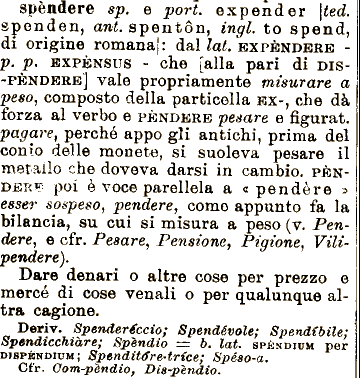 spèndere sp. e port. expender [ted.
spenden, ant. spentôn, ingl. to spend,
di origine romana]: dal lat. EXPÈNDERE -
p. p. EXPÈNSUS - che [alla pari di DIS-
-PÈNDERE] vale propriamente misurare a
peso, composto della particella EX-, che dà
forza al verbo e PÈNDERE pesare e figurat.
pagare, perché appo gli antichi, prima del
conio delle monete, si suoleva pesare il
metallo che doveva darsi in cambio. PÈN-
DERE poi è voce parellela a « pendère »
esser sospeso, pendere, como appunto fa la
bilancia, su cui si misura a peso (v. Pen-
dere, e cfr. Pesare, Pensione, Pigione, Vili-
pendere).
Dare denari o altre cose per prezzo e
mercé di cose venali o per qualunque al-
tra cagione.
Deriv. Spenderéccio; Spendévole; Spendíbile;
Spendicchiàre; Spèndio = b. lat. SPÈNDIUM per
DISPÈNDIUM; Spenditóre-tríce; Spéso-a.
Cfr. Com-pèndio, Dis-pèndio.